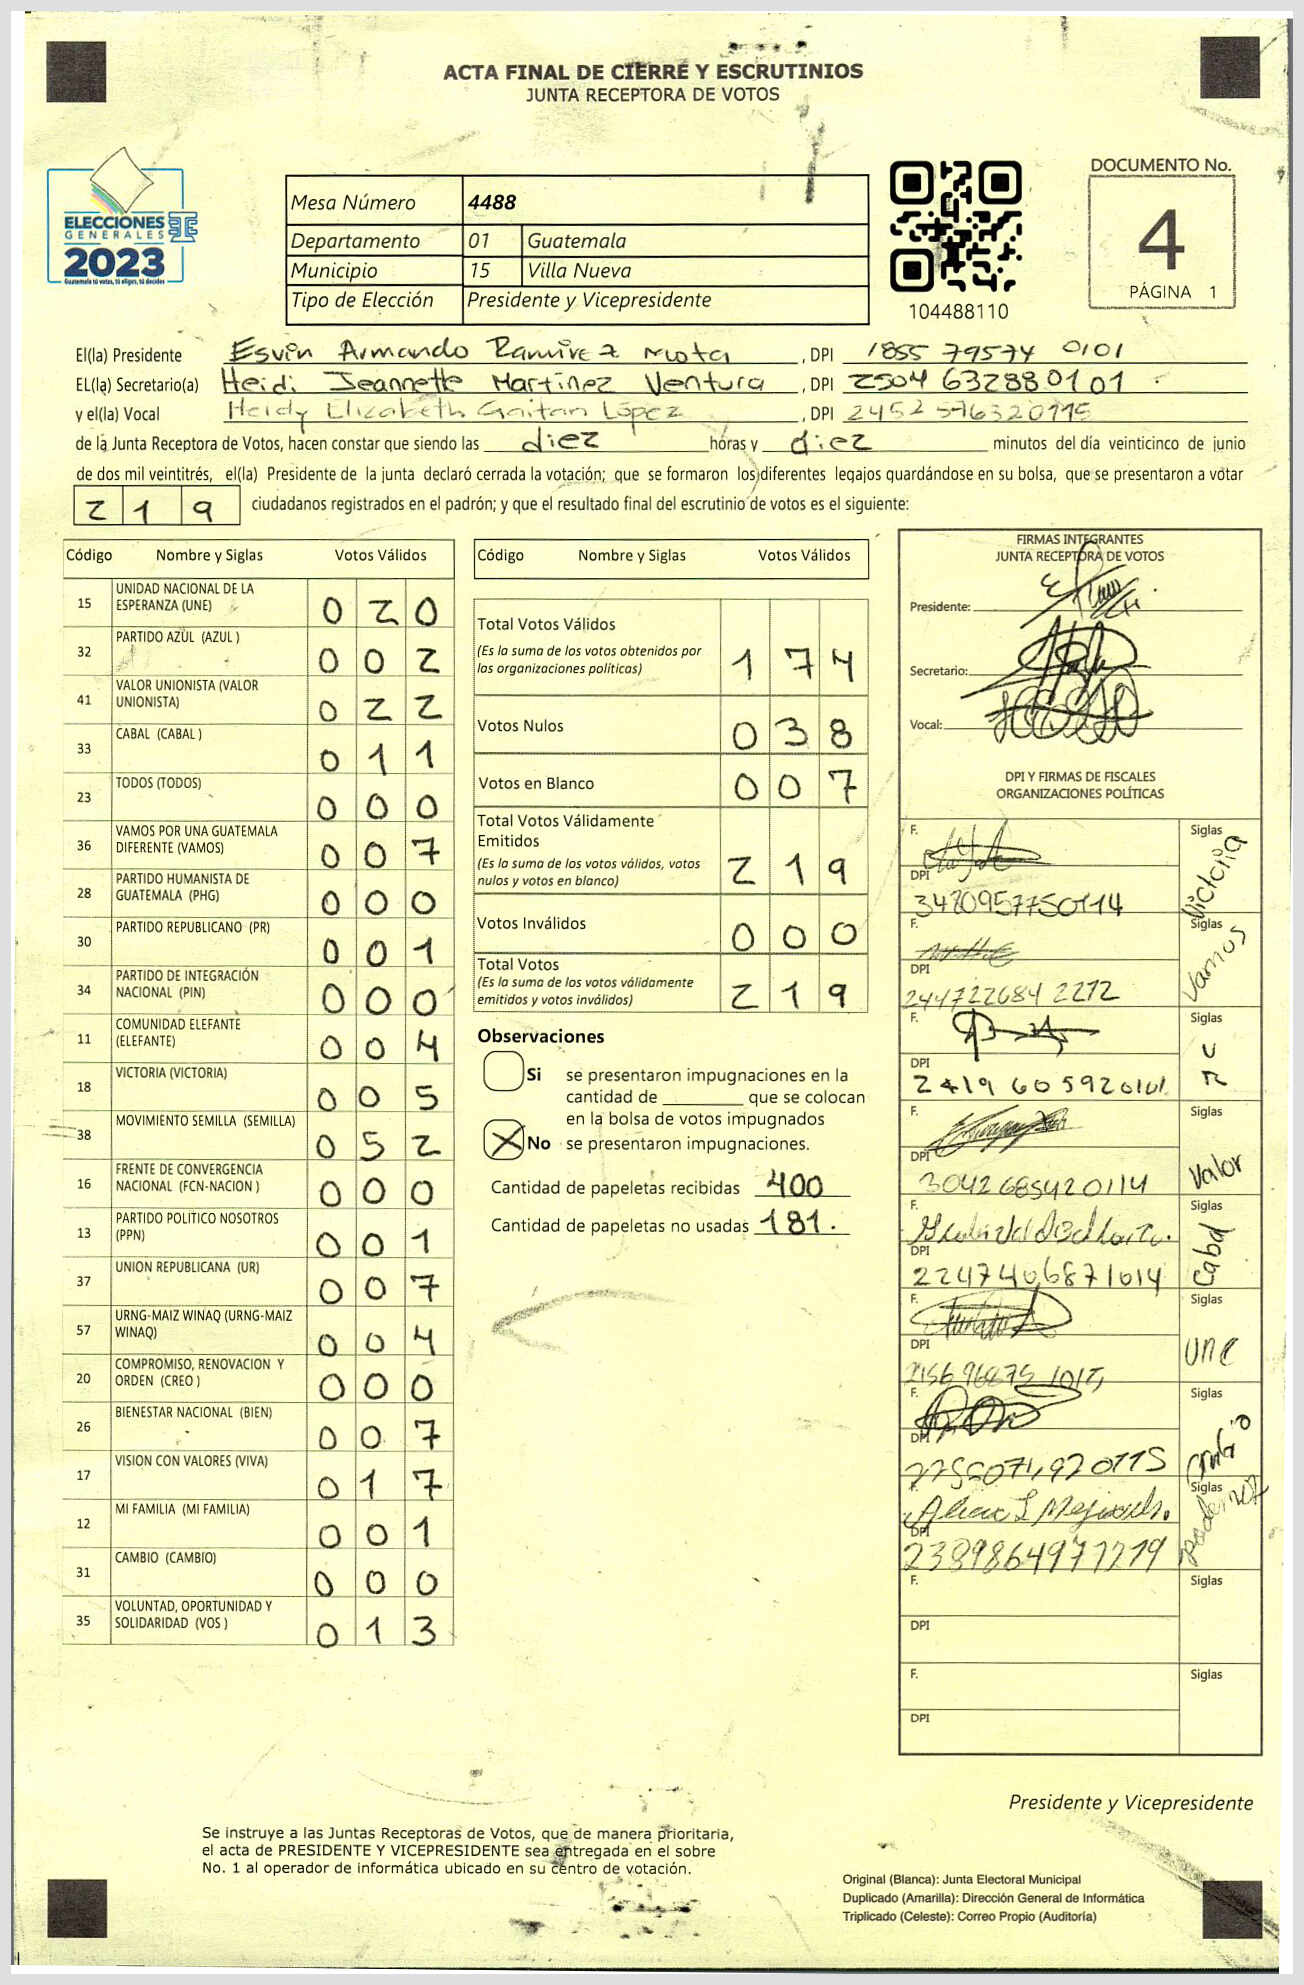 ACTA FINAL DE CIERRE Y ESCRUTINIOS
JUNTA RECEPTORA DE VOTOS
ELECCIONES
GENERALES
2023
Guatemala tú votas, tú eliges, tú decides
Mesa Número 4488
Departamento 01 Guatemala
Municipio 15 Villa Nueva
Tipo de Elección Presidente y Vicepresidente
104488110
DOCUMENTO No.
4
PÁGINA 1
El(la) Presidente Esvin Armando Ramirez Mota, DPI 1855 79574 0101
EL(la) Secretario(a) Heidi Jeannette Martinez Ventura, DPI 2504 63288 0101
y el(la) Vocal Heidy Elizabeth Gaitan López, DPI 2452 57632 0115
de la Junta Receptora de Votos, hacen constar que siendo las diez horas y diez minutos del día veinticinco de junio
de dos mil veintitrés, el(la) Presidente de la junta declaró cerrada la votación; que se formaron los diferentes legajos guardándose en su bolsa, que se presentaron a votar
219 ciudadanos registrados en el padrón; y que el resultado final del escrutinio de votos es el siguiente:
Código Nombre y Siglas Votos Válidos
15 UNIDAD NACIONAL DE LA ESPERANZA (UNE) 020
32 PARTIDO AZUL (AZUL ) 002
41 VALOR UNIONISTA (VALOR UNIONISTA) 022
33 CABAL (CABAL ) 011
23 TODOS (TODOS) 000
36 VAMOS POR UNA GUATEMALA DIFERENTE (VAMOS) 007
28 PARTIDO HUMANISTA DE GUATEMALA (PHG) 000
30 PARTIDO REPUBLICANO (PR) 001
34 PARTIDO DE INTEGRACIÓN NACIONAL (PIN) 000
11 COMUNIDAD ELEFANTE (ELEFANTE) 004
18 VICTORIA (VICTORIA) 005
38 MOVIMIENTO SEMILLA (SEMILLA) 052
16 FRENTE DE CONVERGENCIA NACIONAL (FCN-NACION ) 000
13 PARTIDO POLITICO NOSOTROS (PPN) 001
37 UNION REPUBLICANA (UR) 007
57 URNG-MAIZ WINAQ (URNG-MAIZ WINAQ) 004
20 COMPROMISO, RENOVACION Y ORDEN (CREO ) 000
26 BIENESTAR NACIONAL (BIEN) 007
17 VISION CON VALORES (VIVA) 017
12 MI FAMILIA (MI FAMILIA) 001
31 CAMBIO (CAMBIO) 000
35 VOLUNTAD, OPORTUNIDAD Y SOLIDARIDAD (VOS ) 013
Código Nombre y Siglas Votos Válidos
Total Votos Válidos 174
(Es la suma de los votos obtenidos por
las organizaciones políticas)
Votos Nulos 038
Votos en Blanco 007
Total Votos Válidamente
Emitidos 219
(Es la suma de los votos válidos, votos
nulos y votos en blanco)
Votos Inválidos 000
Total Votos 219
(Es la suma de los votos válidamente
emitidos y votos inválidos)
Observaciones
Si se presentaron impugnaciones en la
cantidad de ______ que se colocan
en la bolsa de votos impugnados
No se presentaron impugnaciones.
Cantidad de papeletas recibidas 400
Cantidad de papeletas no usadas 181.
FIRMAS INTEGRANTES
JUNTA RECEPTORA DE VOTOS
Presidente:
Secretario:
Vocal:
DPI Y FIRMAS DE FISCALES
ORGANIZACIONES POLÍTICAS
F. Siglas Victoria
DPI
F. Siglas Vamos
DPI
244722684 2212
F. Siglas
DPI
2419 60592 0101
F. Siglas Valor
DPI
3042685420114
F. Siglas Cabal
DPI
2247406871014
F. Siglas une
DPI
F. Siglas
DPI
F. Siglas
DPI
F. Siglas
DPI
F. Siglas
DPI
Presidente y Vicepresidente
Se instruye a las Juntas Receptoras de Votos, que de manera prioritaria,
el acta de PRESIDENTE Y VICEPRESIDENTE sea entregada en el sobre
No. 1 al operador de informática ubicado en su centro de votación.
Original (Blanca): Junta Electoral Municipal
Duplicado (Amarilla): Dirección General de Informática
Triplicado (Celeste): Correo Propio (Auditoría)